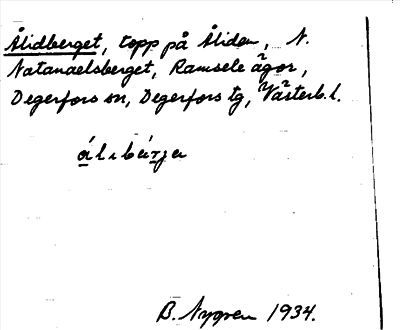 Ålidberget, topp på Åliden, N.
Natanaelsberget, Ramsele ägor,
Degerfors sn, Degerfors tg, Västerb. l.
álıbérjɐ
B. Nygren 1934.